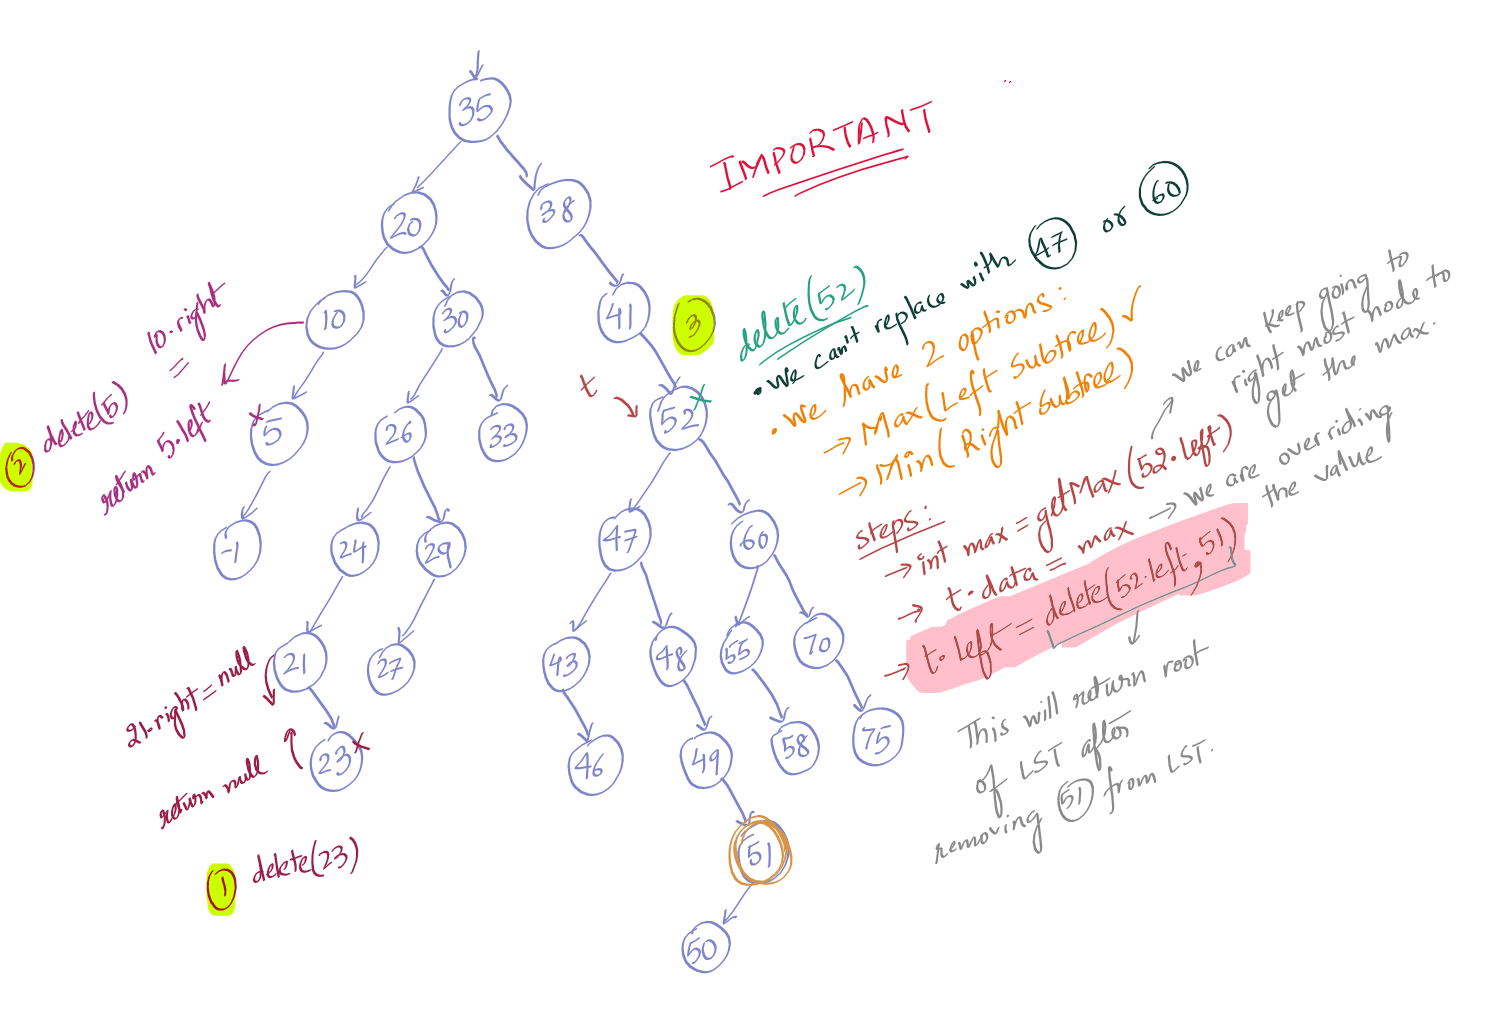 35
20
38
10
30
41
5
26
33
52
-1
24
29
47
60
21
27
43
48
55
70
23
46
49
58
75
51
50
IMPORTANT
1 delete(23)
return null
21.right = null
2 delete(5)
return 5.left
10.right
=
3 delete(52)
• We can't replace with 47 or 60
• We have 2 options:
→ Max(Left Subtree) ✓
→ Min( Right Subtree)
t
x
x
x
steps:
→ int max = getMax(52.left)
→ we can keep going to
right most node to
get the max.
→ t.data = max → we are overriding
the value
→ t.left = delete(52.left, 51)
This will return root
of LST after
removing 51 from LST.